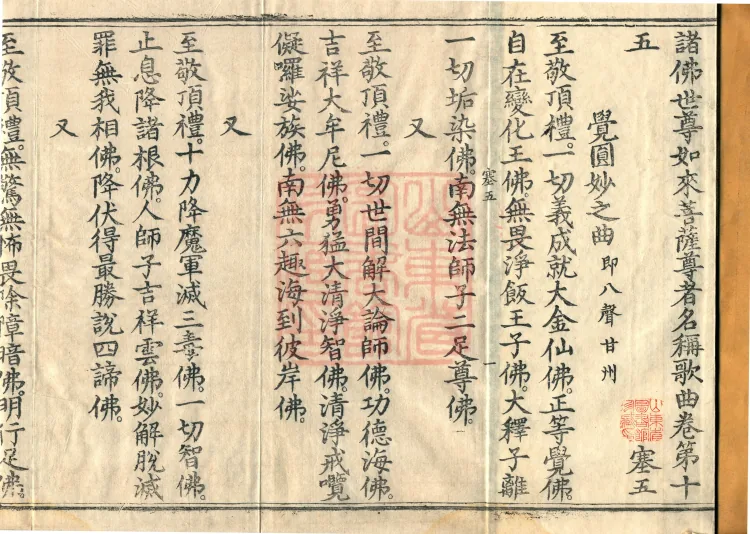 諸佛世尊如來菩薩尊者名稱歌曲卷第十
五 塞五
覺圓妙之曲 即八聲甘州
至敬頂禮。一切義成就大金仙佛。正等覺佛。
自在變化王佛。無畏淨飯王子佛。大釋子離
塞五 一
一切垢染佛。南無法師子二足尊佛。
又
至敬頂禮。一切世間解大論師佛。功德海佛。
吉祥大牟尼佛。勇猛大清淨智佛。清淨戒囕
儗囉娑族佛。南無六趣海到彼岸佛。
又
至敬頂禮。十力降魔軍滅三毒佛。一切智佛。
止息降諸根佛。人師子吉祥雲佛。妙解脫滅
罪無我相佛。降伏得最勝說四諦佛。
又
至敬頂禮。無驚無怖畏除障暗佛。明行足佛。